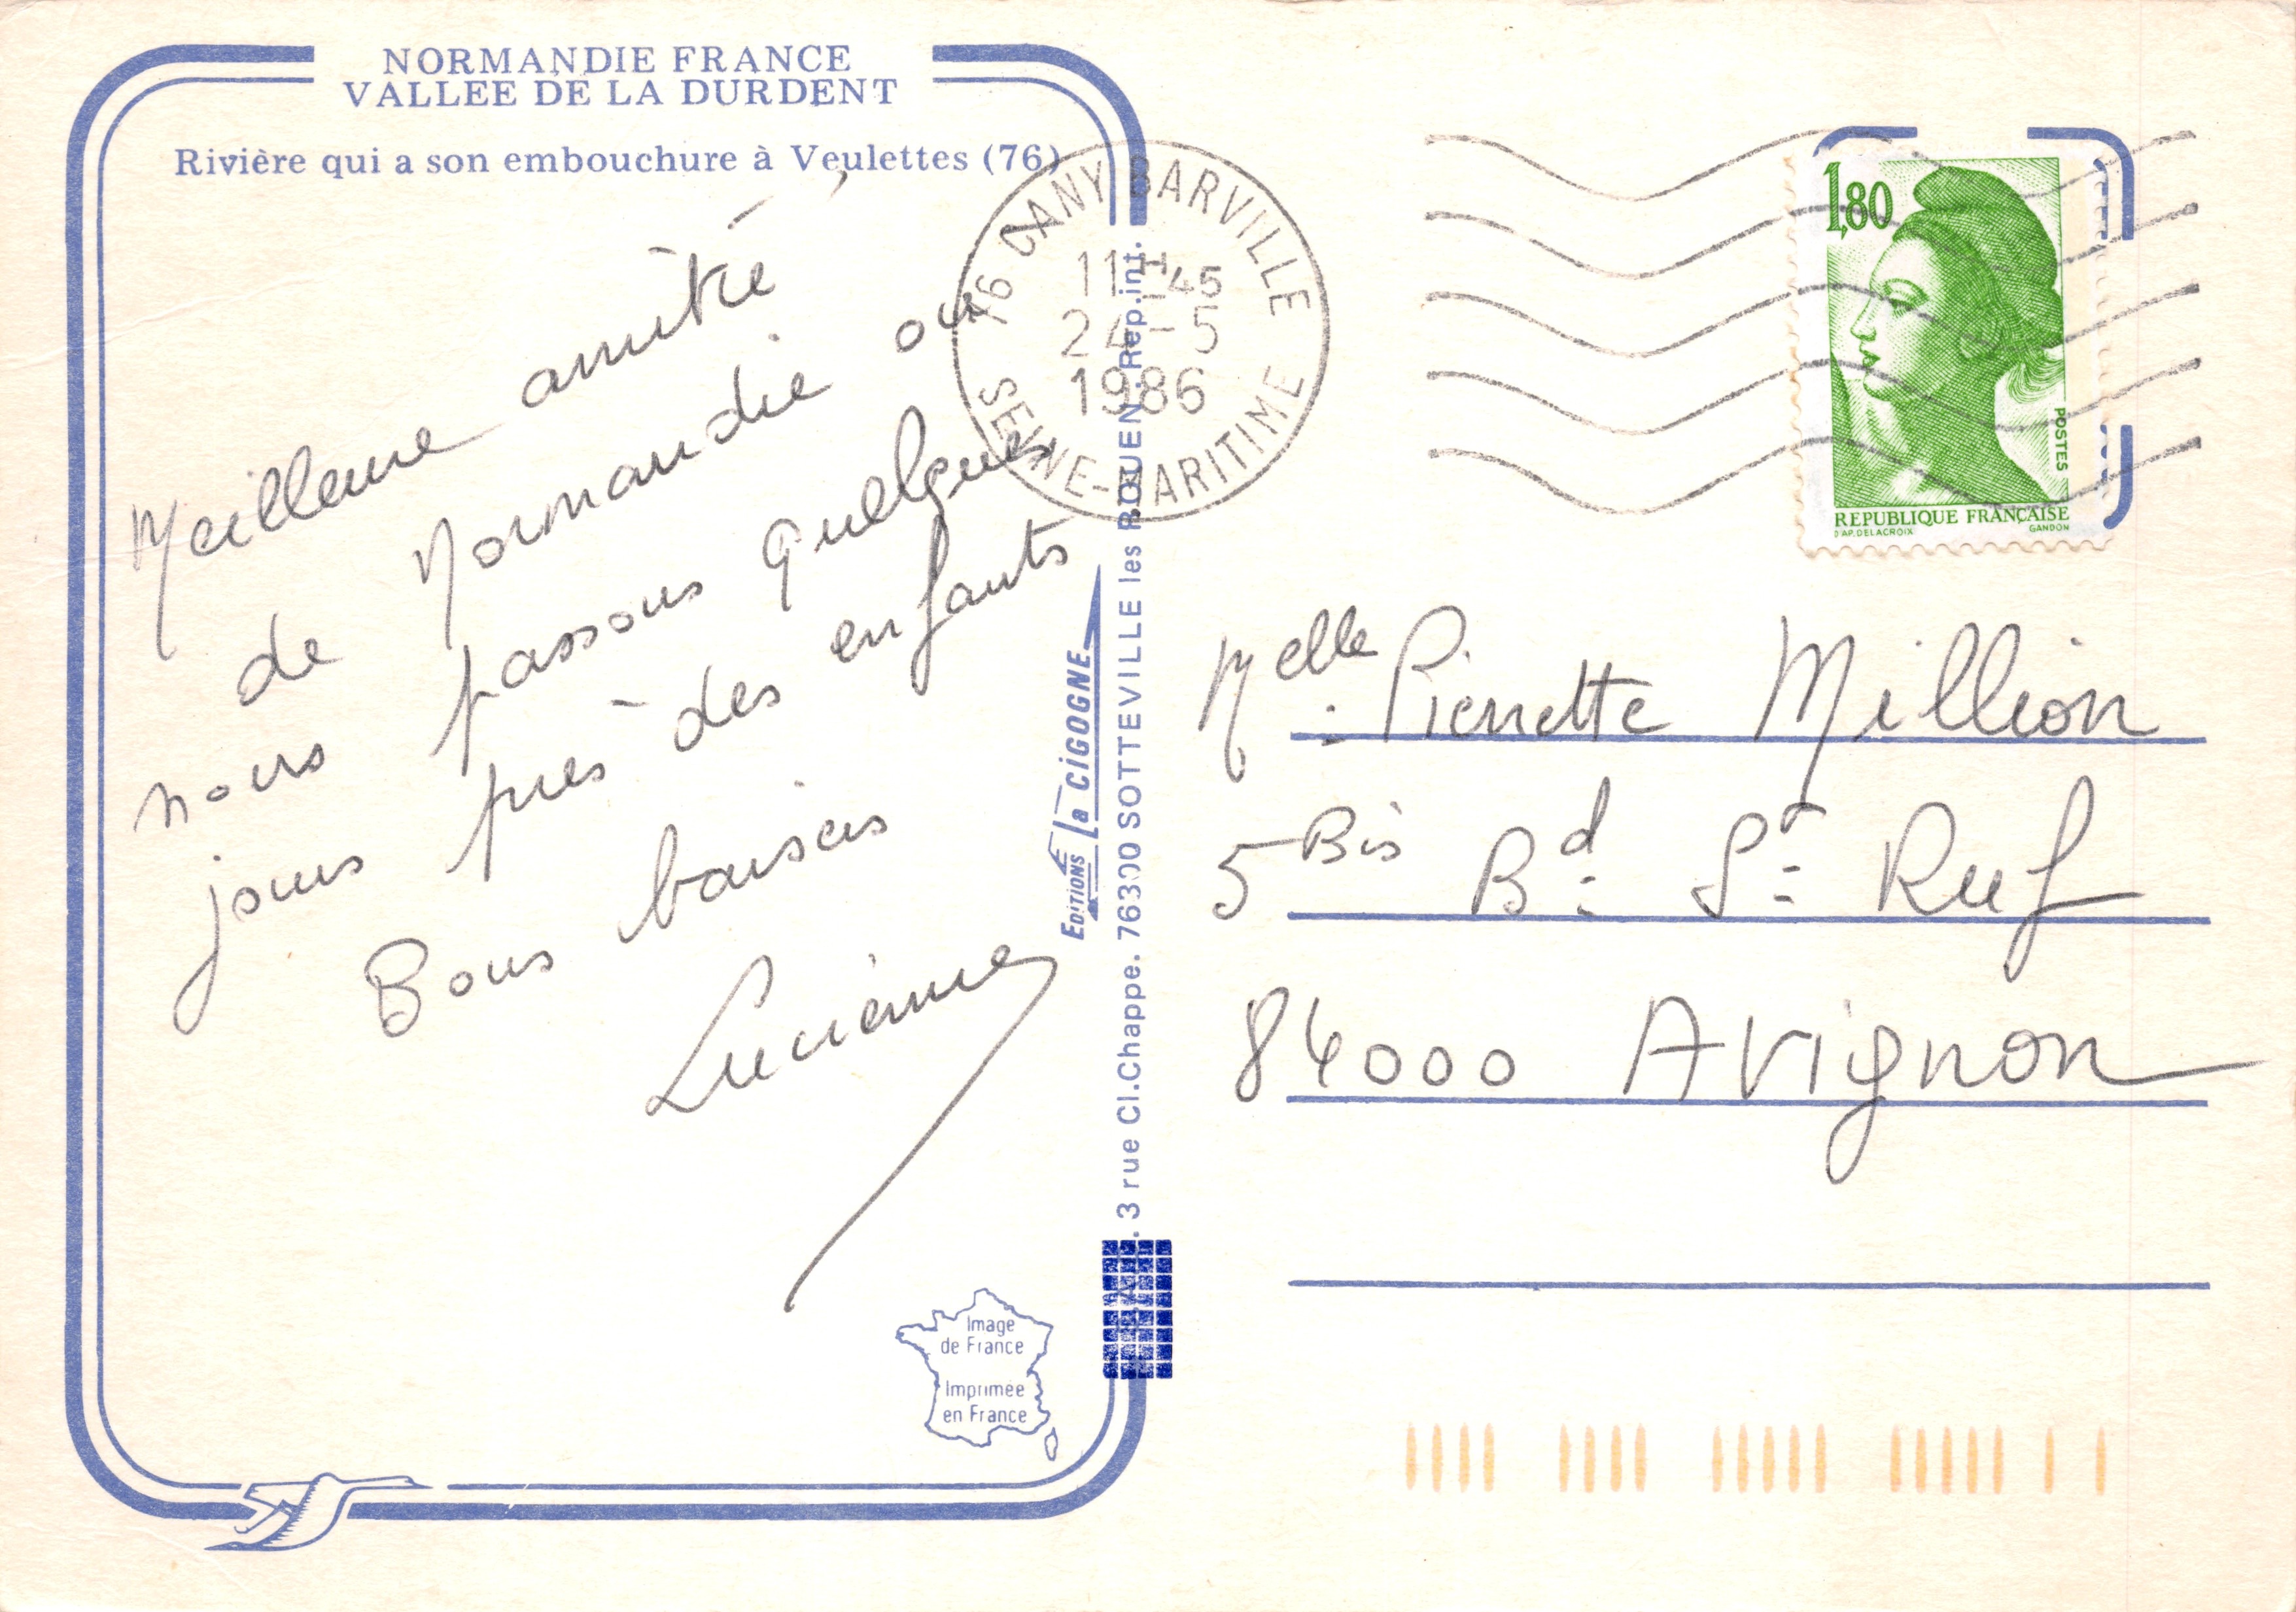 NORMANDIE FRANCE
VALLEE DE LA DURDENT
Rivière qui a son embouchure à Veulettes (76)
Meilleure amitié
de Normandie où
nous passons quelques
jours près des enfants
Bons baisers
Lucienne
76 CANY BARVILLE
11H45
24-5
1986
SEINE-MARITIME
1,80
POSTES
REPUBLIQUE FRANÇAISE
D'AP. DELACROIX GANDON
Melle Pierrette Million
5 Bis Bd St Ruf
84000 Avignon
EDITIONS La CIGOGNE
3 rue Cl.Chappe. 76300 SOTTEVILLE les ROUEN. Rep.int.
Image
de France
Imprimée
en France